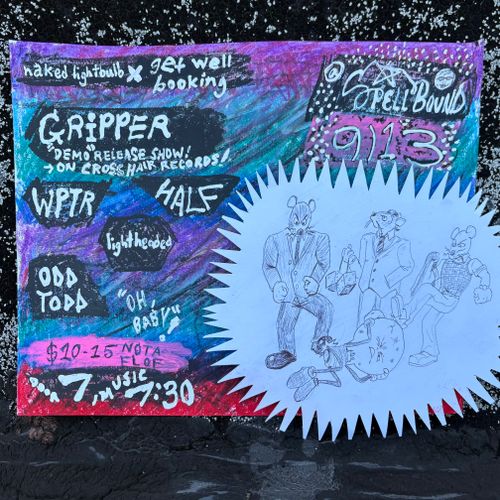 naked lightbulb x get well
booking
@ SPELLBOUND
9/13
GRIPPER
"DEMO" RELEASE SHOW!
→ ON CROSSHAIR RECORDS!
WPTR
HALF
lightheaded
ODD
TODD
"OH,
BABY"!
$10-15 NOTA
FLOF
DOOR 7, MUSIC 7:30